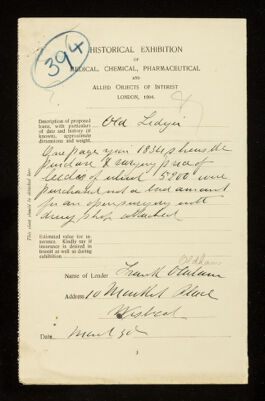 394
HISTORICAL EXHIBITION
OF
MEDICAL, CHEMICAL, PHARMACEUTICAL
AND
ALLIED OBJECTS OF INTEREST
LONDON, 1904.
Description of proposed loans, with particulars of date and history (if known), approximate dimensions and weight.
Old Ledger
One page year 1834 shows the
purchase & varying price of
leeches of which 5200 were
purchased not a bad amount
for an open surgery with
drug shop attached
Estimated value for insurance. Kindly say if insurance is desired in transit as well as during exhibition
Oldham
Name of Lender Frank Oldham
Address 10 Market Place
Wisbech
Date March